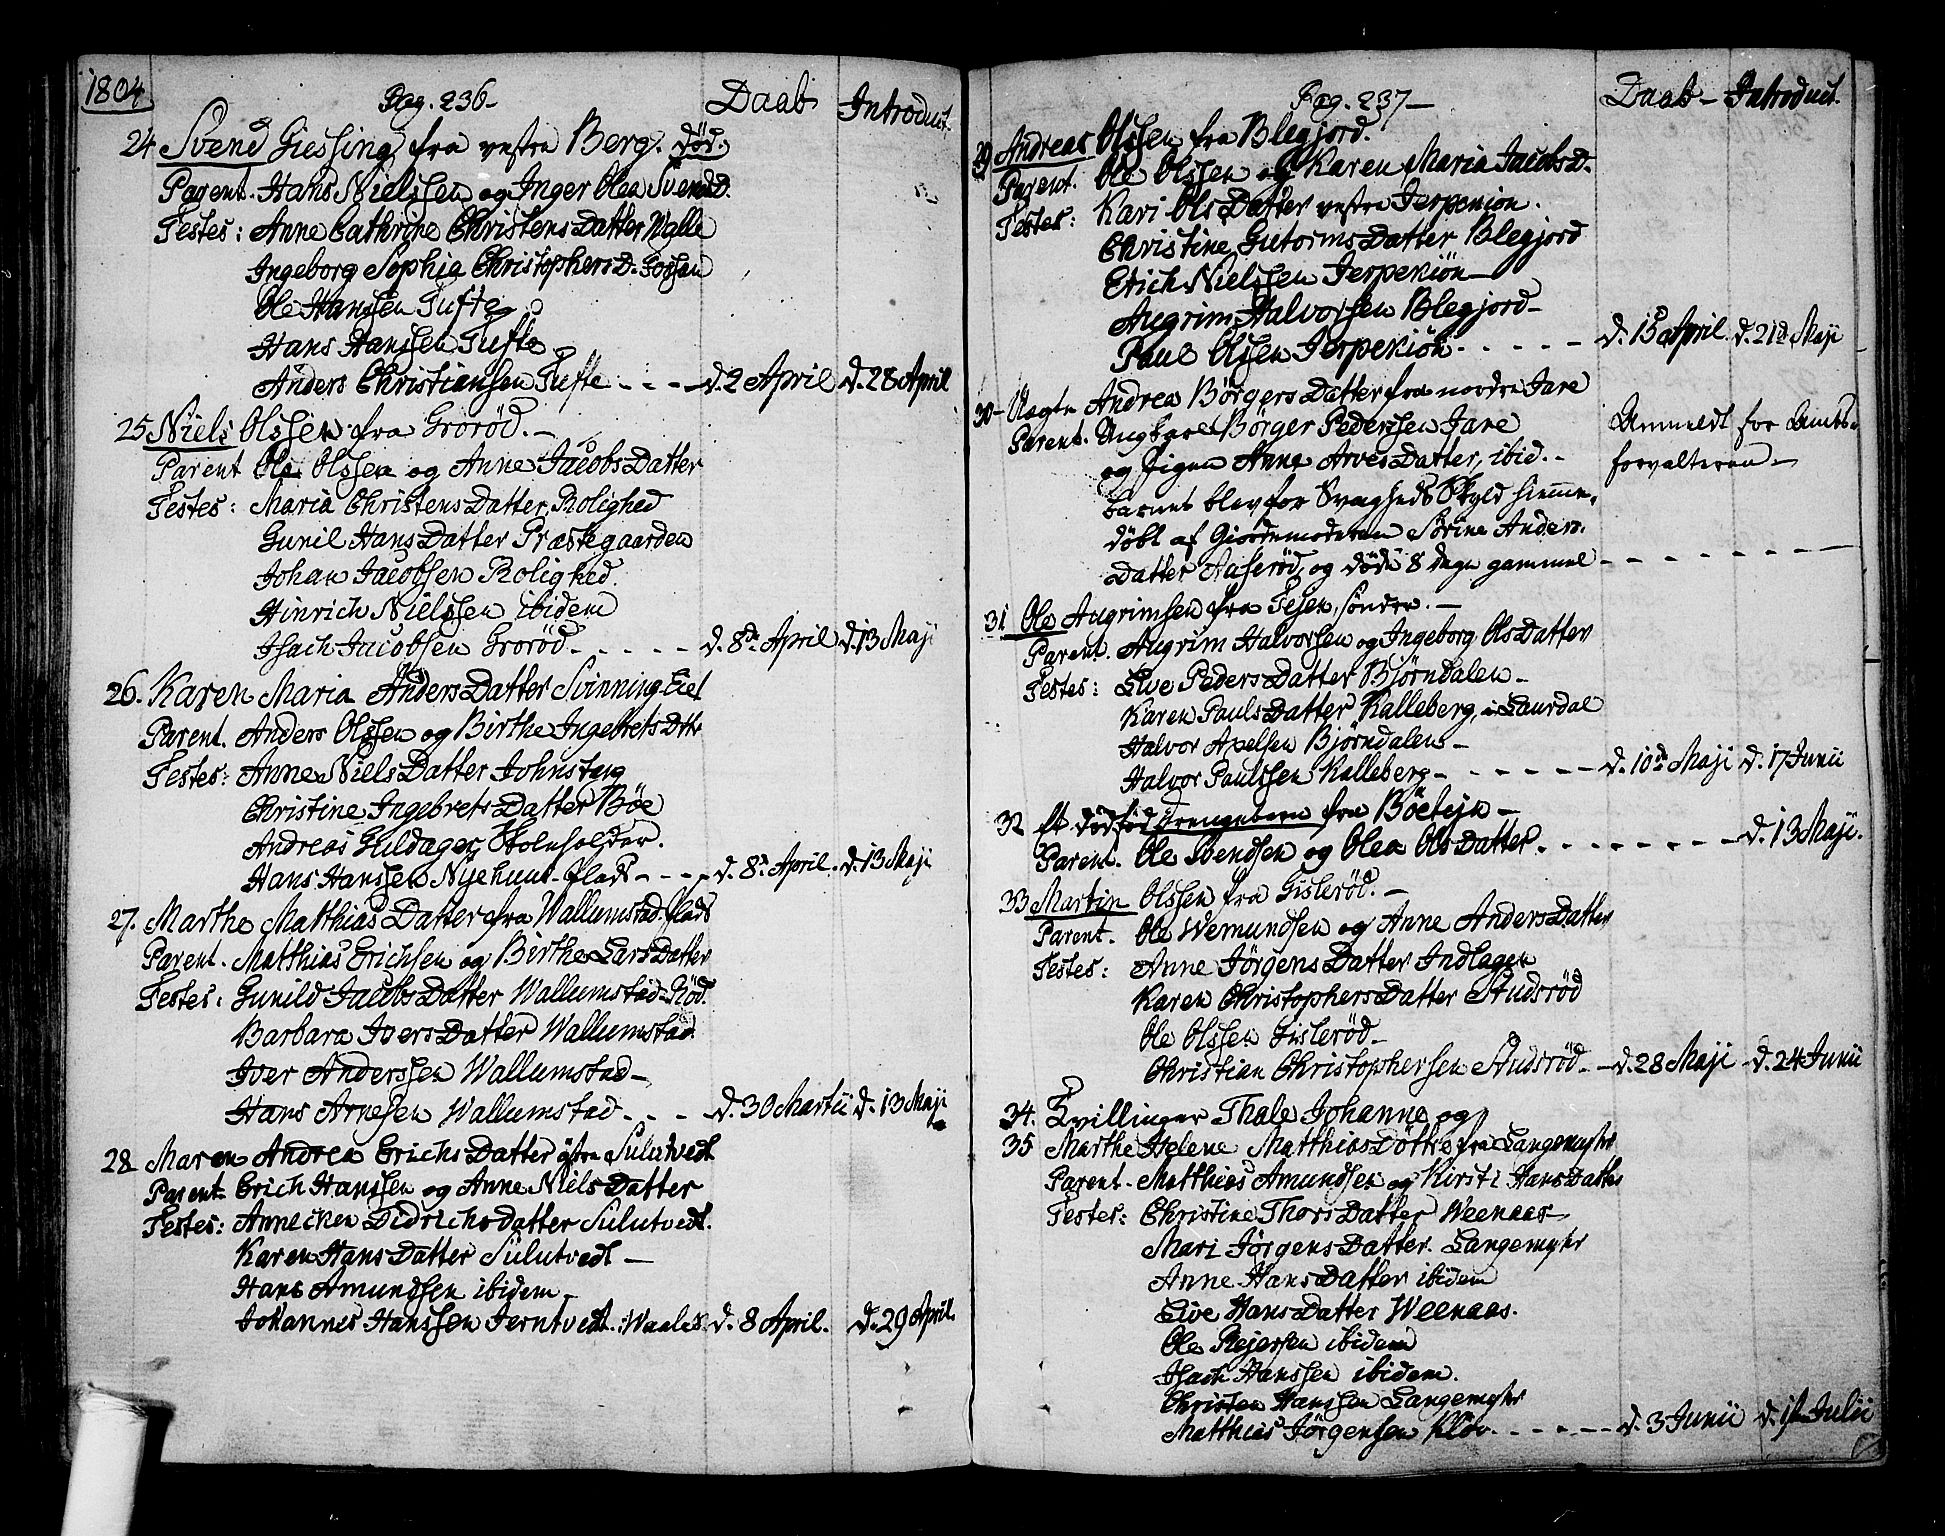 1804
Pag. 236- Daab Introduct.
24 Svend Giessing fra vestre Berg. død.
Parent. Hans Nielssen og Inger Olea SvendsD.
Testes: Anne Cathrine ChristensDatter Walle
Ingeborg Sophia ChristophersD. Gossen
Ole Hanssen Tufte
Hans Hanssen Tufte
Anders Christiansen Tufte - - - - d. 2 April d. 28 April
25 Niels Olssen fra Grorød. -
Parent Ole Olssen og Anne JacobsDatter
Testes: Maria ChristensDatter, Rolighed
Gunil HansDatter Præstegaarden
Johan Jacobsen Rolighed.
Hinrich Nielssen ibidem
Isach Jacobsen Grorød - - - - - d. 8de April d. 13 Maji
26. Karen Maria AndersDatter Svinning-Eiet
Parent. Anders Olssen og Birthe IngebretsDttr
Testes: Anne NielsDatter Johnstang
Christine IngebretsDatter Bøe
Andreas Guldager, Skoleholder.
Hans Hanssen Nyehuus-plads - - - d. 8de April. d. 13 Maji
27. Marthe MatthiasDatter fra Wallumstad-plads
Parent. Matthias Erichsen og Birthe LarsDatter
Testes: Gunild JacobsDatter Wallumstad-Rød.
Barbara IversDatter Wallumstad
Iver Anderssen Wallumstad -
Hans Arnesen Wallumstad - - - - d. 30 Martii d. 13 Maji
28 Maren Andrea ErichsDatter østre Sulutvedt
Parent- Erich Hanssen og Anne NielsDatter
Testes: Annecken Didrichsdatter Sulutvedt.
Karen HansDatter Sulutvedt -
Hans Amundssen ibidem -
Johannes Hanssen Jerntvedt. d. 8 April. d. 29 April.
Pag. 237- Daab- Introduct.
29 Andreas Olssen fra Blegjord.
Parent. Ole Olssen og Karen Maria JacobsD.
Testes: Kari OlsDatter vestre Jerpekiøn.
Christine GutormsDatter Blegjord
Erich Nielssen Jerpekiøn -
Augrim Halvorsen Blegjord -
Paul Olssen Jerpekiøn - - - - - d. 15 April. d. 21de Maji
30- Uægte Andrea BørgersDatter fra nordre Jare
Parent. Ungkarl Børger Pederssen Jare
og Pigen Anne ArvesDatter, ibid. - Anmeldt for Amts-
forvalteren -
Barnet blev for Svagheds Skyld hiemme-
døbt af Giordemoderen Sørine Anders-
Datter Aaserød, og døde 8 dage gammel - - - - - -
31 Ole Augrimsen fra Tesen, søndre. -
Parent. Augrim Halvorssen og Ingeborg OlsDatter
Testes: Live PedersDatter Bjørndalen -
Karen PaulsDatter Kalleberg, i Laurdal
Halvor Axelsen Bjørndalen -
Halvor Paulssen Kalleberg - - - - - - d. 10de Maji d. 17 Junii
32 Et dødfød Drengebarn fra Bøeteje -
Parent. Ole Svendsen og Olea OlsDatter. - - - - - - - d. 13 Maji.
33 Martin Olssen fra Gislerød. -
Parent. Ole Wemundsen og Anne AndersDatter
Testes: Anne JørgensDatter Indlagen
Karen ChristophersDatter Studsrød
Ole Olssen Gislerød -
Christian Christophersen Studsrød - - d. 28 Maji - d. 24 Junii
34. Tvillinger Thale Johanne og
35 Marthe Helene MatthiasDøttre fra Langemyhr
Parent. Matthias Amundsen og Kirsti HansDatter
Testes: Christine ThorsDatter Weenaas
Mari JørgensDatter. Langemyhr
Anne HansDatter ibidem
Live HansDatter Weenaas.
Ole Rejersen ibidem
Isach Hanssen ibidem.
Christen Hanssen Langemyhr
Matthias Jørgensen Kløv. - - - - - - d. 3 Junii d. 1ste Julii